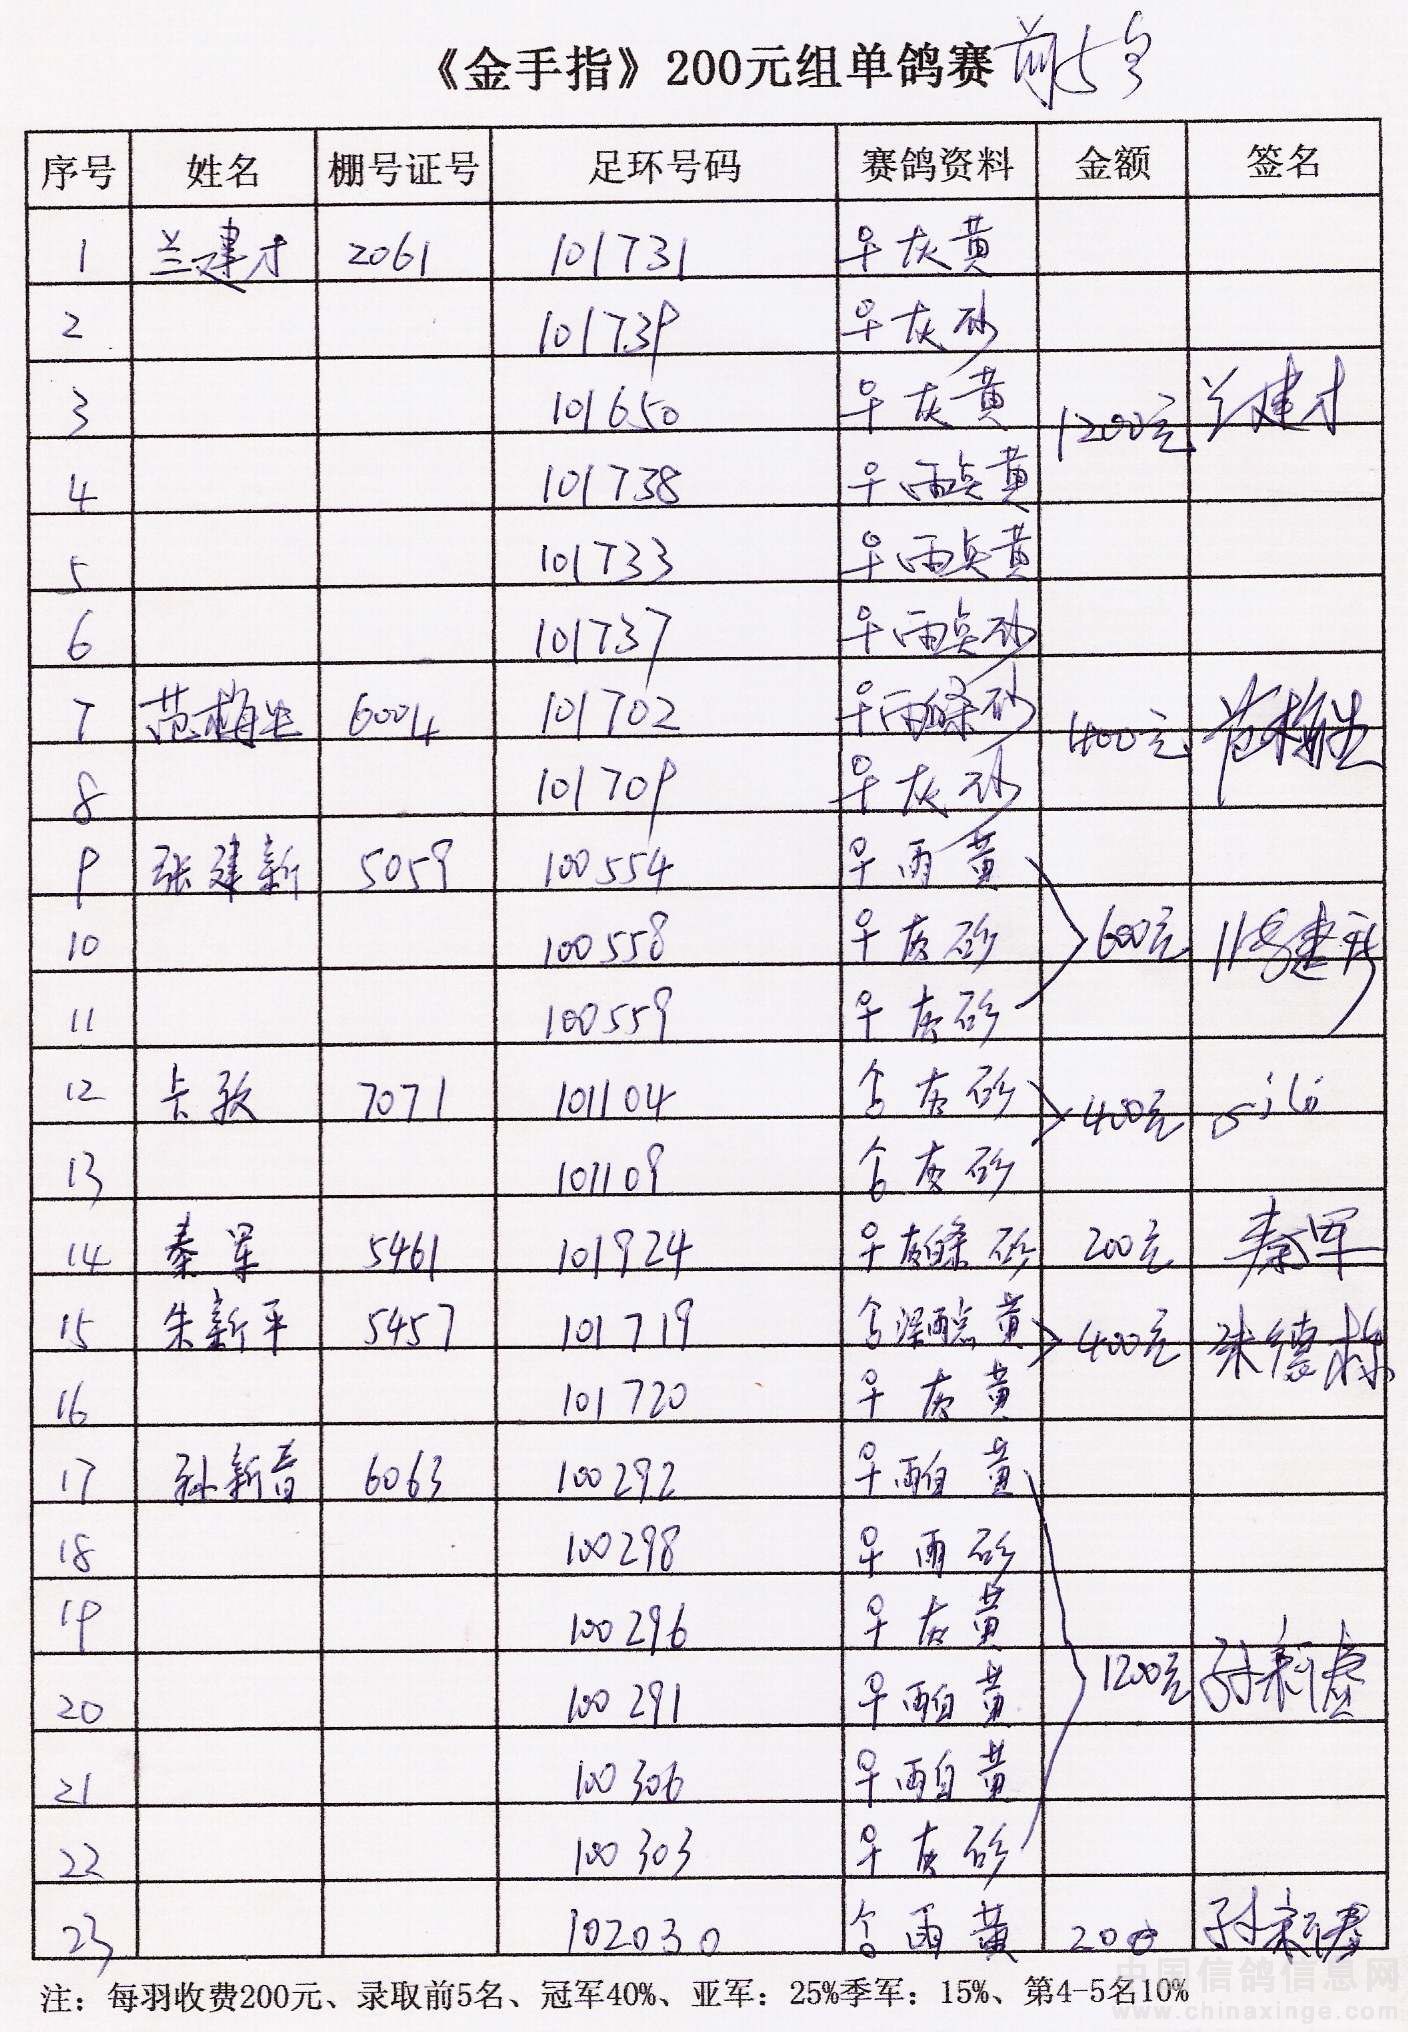 《金手指》200元组单鸽赛 前5名
序号 姓名 棚号证号 足环号码 赛鸽资料 金额 签名
1 兰建才 2061 101731 ♀灰黄
2 101739 ♀灰砂
3 101650 ♀灰黄 1200元 兰建才
4 101738 ♀雨点黄
5 101733 ♀雨点黄
6 101737 ♀雨点砂
7 范梅生 6004 101702 ♀雨條砂 400元 范梅生
8 101709 ♀灰砂
9 张建新 5059 100554 ♀雨黄
10 100558 ♀灰砂 600元 张建新
11 100559 ♀灰砂
12 卡孜 7071 101104 ♂灰砂 400元
13 101109 ♂灰砂
14 秦军 5461 101924 ♀灰白条砂 200元 秦军
15 朱新平 5457 101719 ♂深雨点黄 400元 朱德栋
16 101720 ♀灰黄
17 孙新春 6063 100292 ♀雨白黄
18 100298 ♀雨砂
19 100296 ♀灰黄
20 100291 ♀雨白黄 1200元 孙新春
21 100306 ♀雨白黄
22 100303 ♀灰砂
23 102030 ♂雨黄 200 孙新春
注：每羽收费200元、录取前5名、冠军40%、亚军：25%季军：15%、第4-5名10%
中国信鸽信息网
www.chinaxinge.com